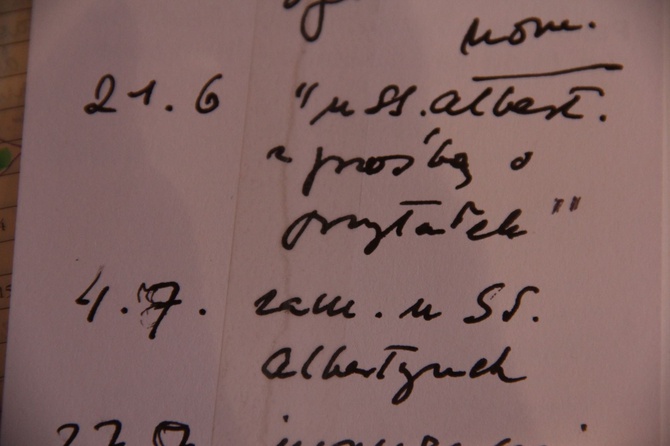 mom.
21.6 "u SS. Albert.
z prośbą o
przytułek" "
4.7. zam. u SS.
Albertynek